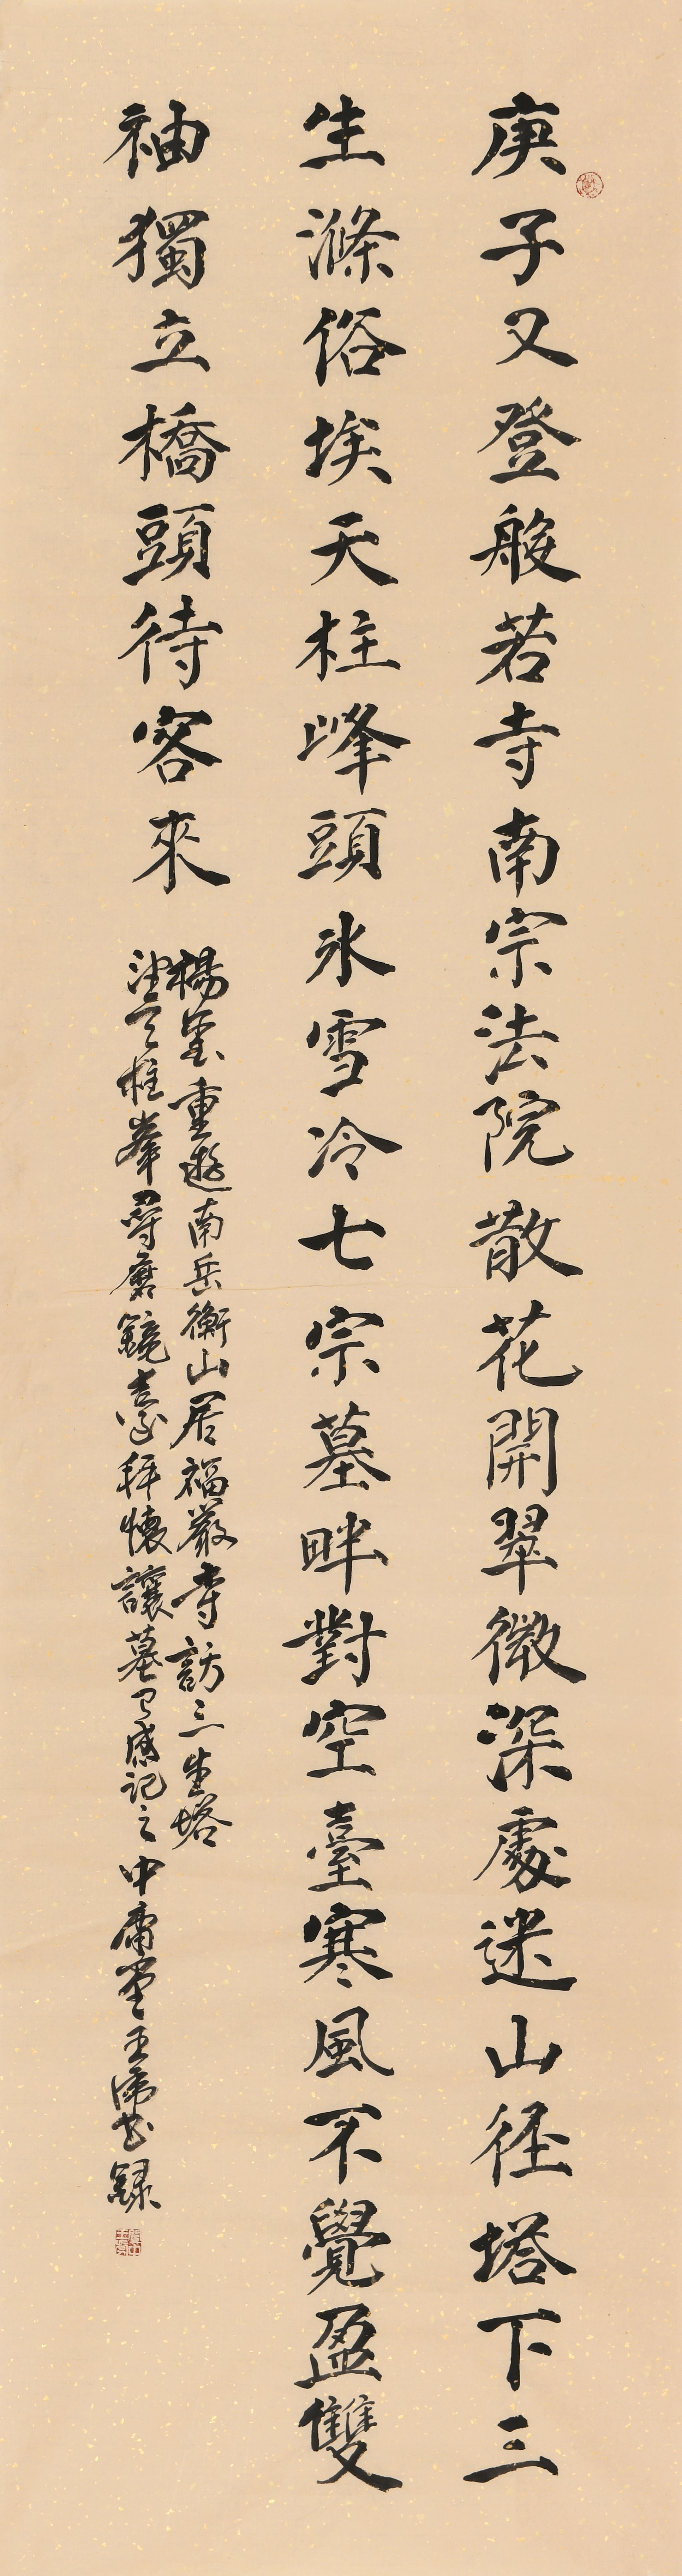 庚子又登般若寺南宗法院散花開翠微深處迷山徑塔下三
生滌俗埃天柱峰頭氷雪冷七宗墓畔對空臺寒風不覺盈雙
袖獨立橋頭待客來
楊 重遊南岳衡山居福嚴寺訪三生塔
柱峯尋磨鏡臺拜懷讓墓 感記之中庸堂王 錄